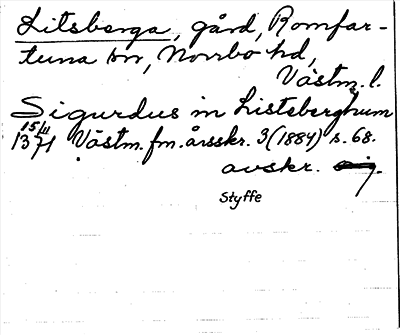 Litsberga, gård, Romfar-
tuna sn, Norrbo hd,
Västm. l.
Sigurdus in Listsberghum
15/11
1371 Västm. fm. årsskr. 3 (1884) s. 68.
avskr.
Styffe